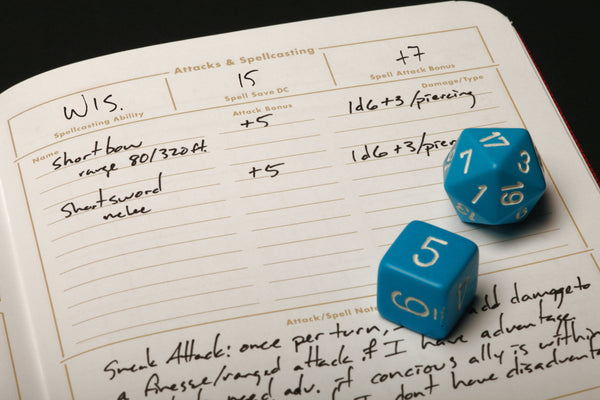 Attacks & Spellcasting
WIS. 15 +7
Spellcasting Ability Spell Save DC Spell Attack Bonus
Name Attack Bonus Damage/Type
shortbow +5 1d6+3/piercing
range 80/320ft.
shortsword +5 1d6+3/pier
melee
Attack/Spell
Sneak Attack: once per turn, add damage to
a finesse/ranged attack if I have advantage
need adv. if concious ally is within
I don't have
7 17 3 1 19
5 6 1